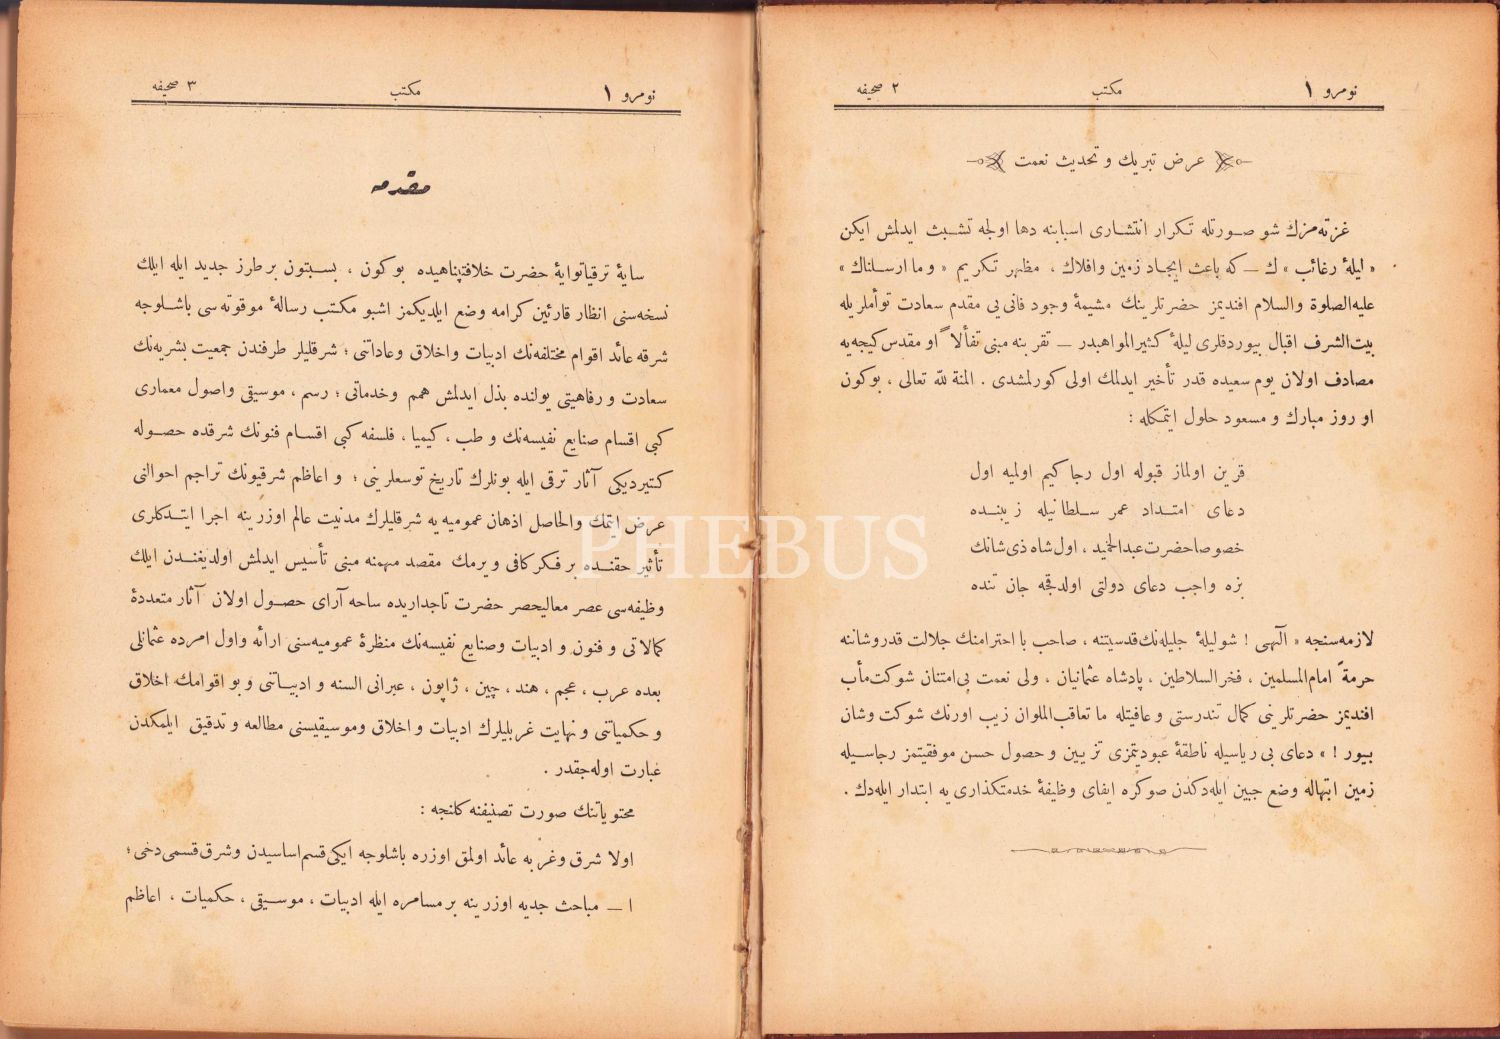 نومرو ١ مكتب ٢ صحيفه
عرض تبريك و تحديث نعمت
غزته‌مزك شو صورتله تكرار انتشارى اسبابنه دها اولجه تشبث ايدلمش ايكن
« ليلۀ رغائب » ك ــ كه باعث ايجاد زمين وافلاك ، مظهر تكريم « وما ارسلناك »
عليه‌الصلوة والسلام افنديمز حضرتلرينك مشيمۀ وجود فانى‌يى مقدم سعادت توأملريله
بيت‌الشرف اقبال بيوردقلرى ليلۀ كثيرالمواهبدر ــ تقربنه مبنى تفألاً او مقدس كيجه‌يه
مصادف اولان يوم سعيده قدر تأخير ايدلمك اولى كورلمشدى . المنة لله تعالى ، بوكون
او روز مبارك و مسعود حلول ايتمكله :
قرين اولماز قبوله اول رجا كيم اولميه اول
دعاى امتداد عمر سلطانيله زيبنده
خصوصا حضرت عبدالحميد ، اول شاه ذى‌شانك
بزه واجب دعاى دولتى اولدقجه جان تنده
لازمه‌سنجه « آلهى ! شو ليلۀ جليله‌نك قدسيتنه ، صاحب با احترامنك جلالت قدر وشاننه
حرمةً امام‌المسلمين ، فخرالسلاطين ، پادشاه عثمانيان ، ولى نعمت بى‌امتنان شوكت‌مأب
افنديمز حضرتلرينى كمال تندرستى و عافيتله ما تعاقب‌الملوان زيب اورنك شوكت وشان
بيور ! » دعاى بى رياسيله ناطقۀ عبوديتمزى تزيين و حصول حسن موفقيتمز رجاسيله
زمين ابتهاله وضع جبين ايله‌دكدن صوكره ايفاى وظيفۀ خدمتكذارى يه ابتدار ايله‌دك .
نومرو ١ مكتب ٣ صحيفه
مقدمه
سايۀ ترقياتوايۀ حضرت خلافتپناهيده بوكون ، بسبتون بر طرز جديد ايله ايلك
نسخه‌سنى انظار قارئين كرامه وضع ايلديكمز اشبو مكتب رسالۀ موقوته‌سى باشلوجه
شرقه عائد اقوام مختلفه‌نك ادبيات واخلاق وعاداتنى ؛ شرقليلر طرفندن جمعيت بشريه‌نك
سعادت و رفاهيتى يولنده بذل ايدلمش همم وخدماتى ؛ رسم ، موسيقى واصول معمارى
كبى اقسام صنايع نفيسه‌نك و طب ، كيميا ، فلسفه كبى اقسام فنونك شرقده حصوله
كتيرديكى آثار ترقى ايله بونلرك تاريخ توسعلرينى ؛ و اعاظم شرقيونك تراجم احوالنى
عرض ايتمك والحاصل اذهان عموميه يه شرقليلرك مدنيت عالم اوزرينه اجرا ايتدكلرى
تأثير حقنده بر فكر كافى ويرمك مقصد مهمنه مبنى تأسيس ايدلمش اولديغندن ايلك
وظيفه‌سى عصر معاليحصر حضرت تاجداريده ساحه آراى حصول اولان آثار متعددۀ
كمالاتى و فنون و ادبيات وصنايع نفيسه‌نك منظرۀ عموميه‌سنى ارائه واول امرده عثمانلى
بعده عرب ، عجم ، هند ، چين ، ژاپون ، عبرانى السنه و ادبياتنى و بو اقوامك اخلاق
و حكمياتنى و نهايت غربليلرك ادبيات و اخلاق وموسيقيسنى مطالعه و تدقيق ايلمكدن
عبارت اوله‌جقدر .
محتوياتنك صورت تصنيفنه كلنجه :
اولا شرق وغربه عائد اولمق اوزره باشلوجه ايكى قسم اساسيدن وشرق قسمى دخى ؛
١ ــ مباحث جديه اوزرينه بر مسامره ايله ادبيات ، موسيقى ، حكميات ، اعاظم
PHEBUS